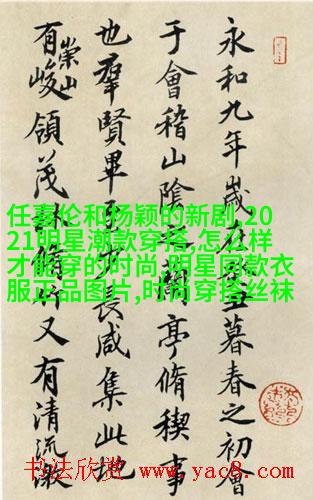 永和九年歲在暮春之初會
于會稽山陰亭脩稧事
也羣賢畢長咸集此地
有崇山峻領茂脩又有清流激
任嘉伦和杨颖的新剧,20
21明星潮款穿搭,怎么样
才能穿的时尚,明星同款衣
服正品图片,时尚穿搭丝袜
书法欣赏 www.yac8.com